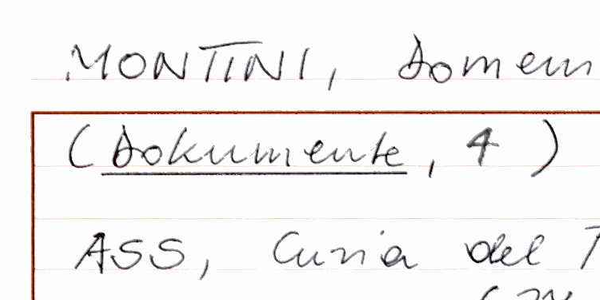 MONTINI, Domen
(Dokumente, 4)
ASS, Curia del